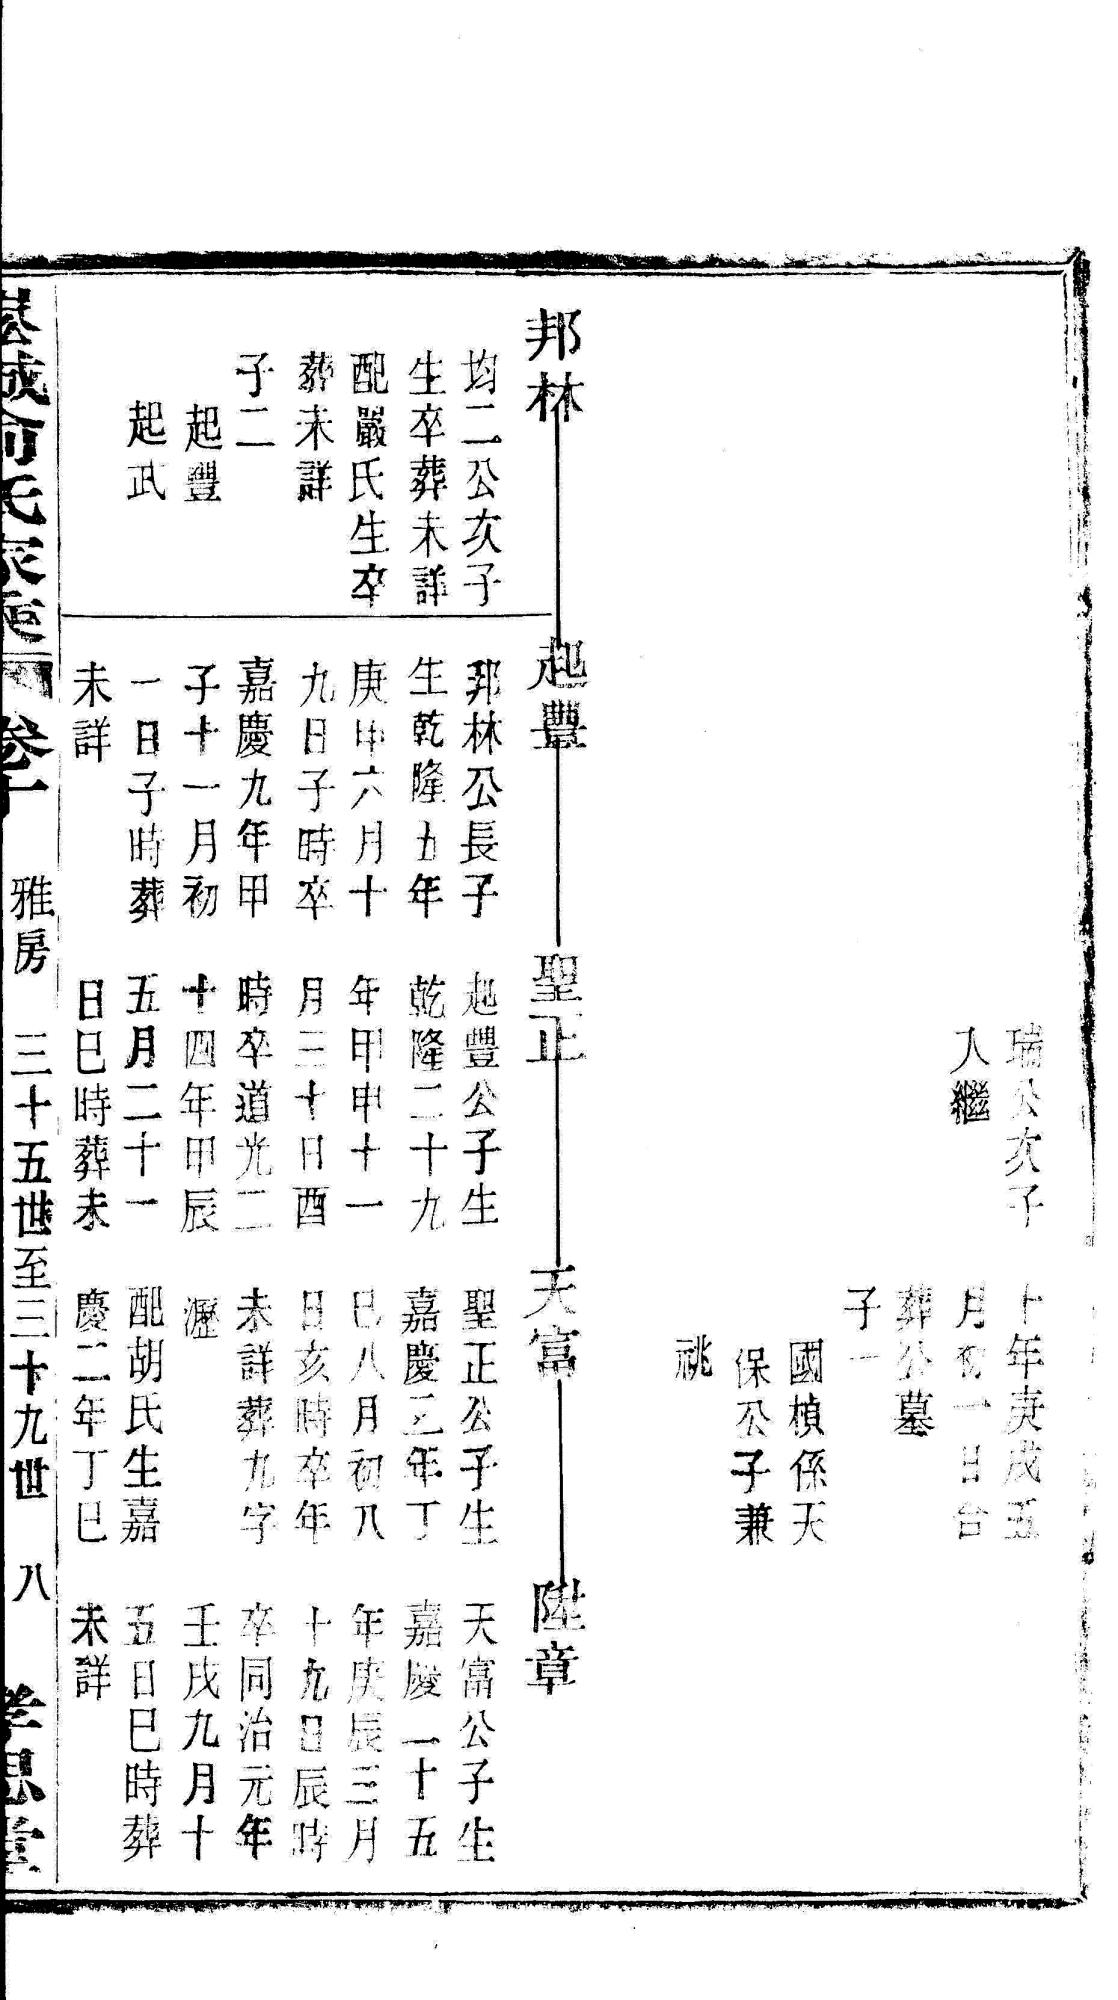 瑞公次子
入繼
十年庚戌五
月初一日台
葬公墓
子一
國楨係天
保公子兼
祧
邦林
均二公次子
生卒葬未詳
配嚴氏生卒
葬未詳
子二
起豐
起武
起豐
邦林公長子
生乾隆五年
庚申六月十
九日子時卒
嘉慶九年甲
子十一月初
一日子時葬
未詳
聖正
起豐公子生
乾隆二十九
年甲申十一
月三十日酉
時卒道光二
十四年甲辰
五月二十一
日巳時葬未
天富
聖正公子生
嘉慶二年丁
巳八月初八
日亥時卒年
未詳葬九字
瀝
配胡氏生嘉
慶二年丁巳
陞章
天富公子生
嘉慶二十五
年庚辰三月
十九日辰時
卒同治元年
壬戌九月十
五日巳時葬
未詳
俞氏家乘 卷十 雅房 三十五世至三十九世 八 孝思堂